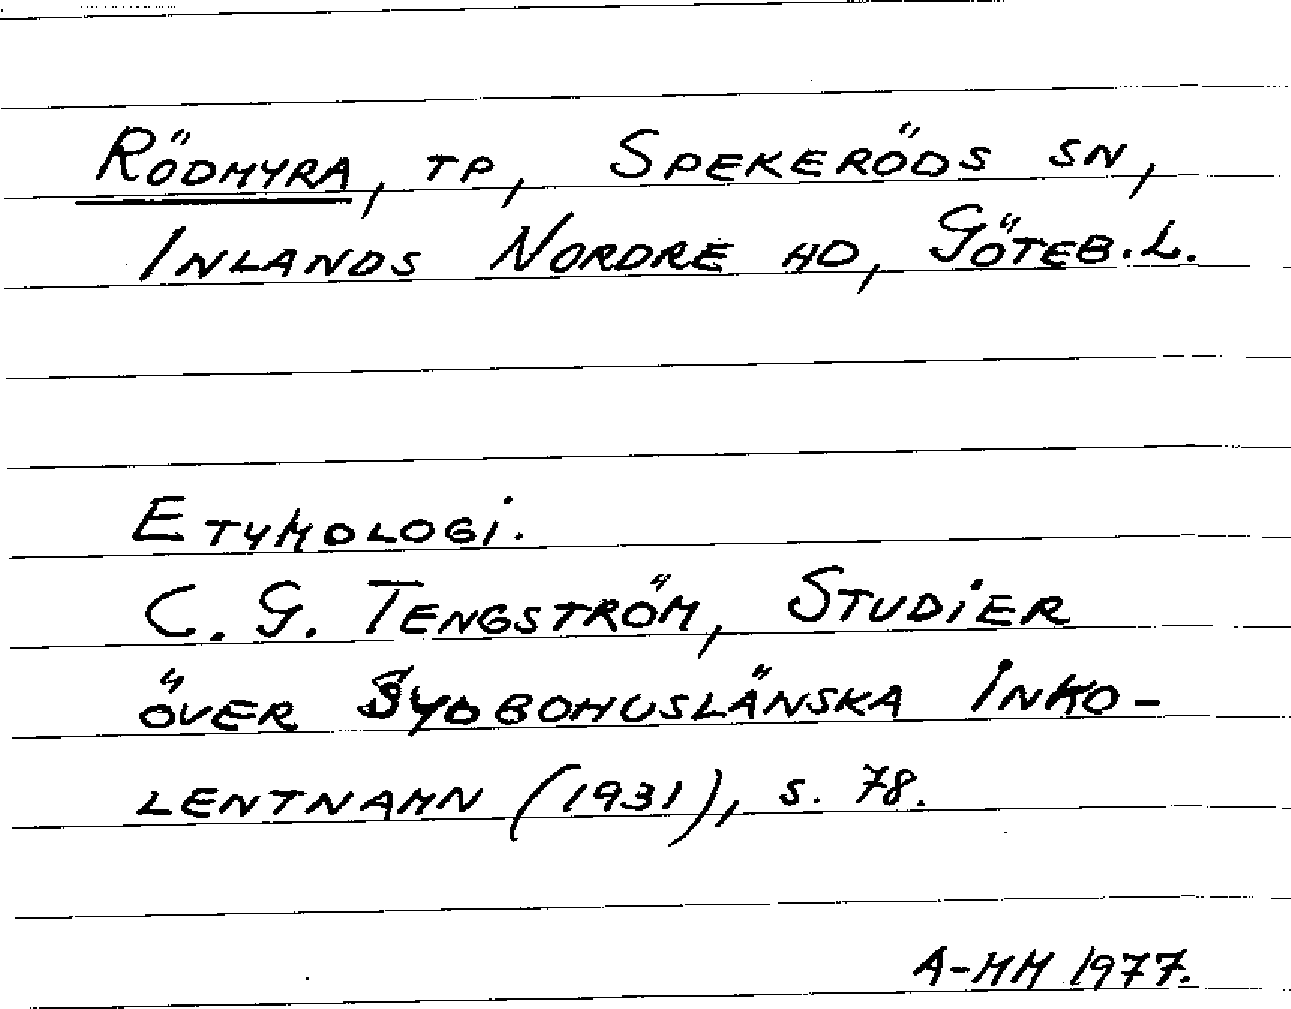 RÖDMYRA, TP, SPEKERÖDS SN,
INLANDS NORDRE HD, GÖTEB.L.
ETYMOLOGI.
C. G. TENGSTRÖM, STUDIER
ÖVER SYDBOHUSLÄNSKA INKO-
LENTNAMN (1931), S. 78.
A-MM 1977.